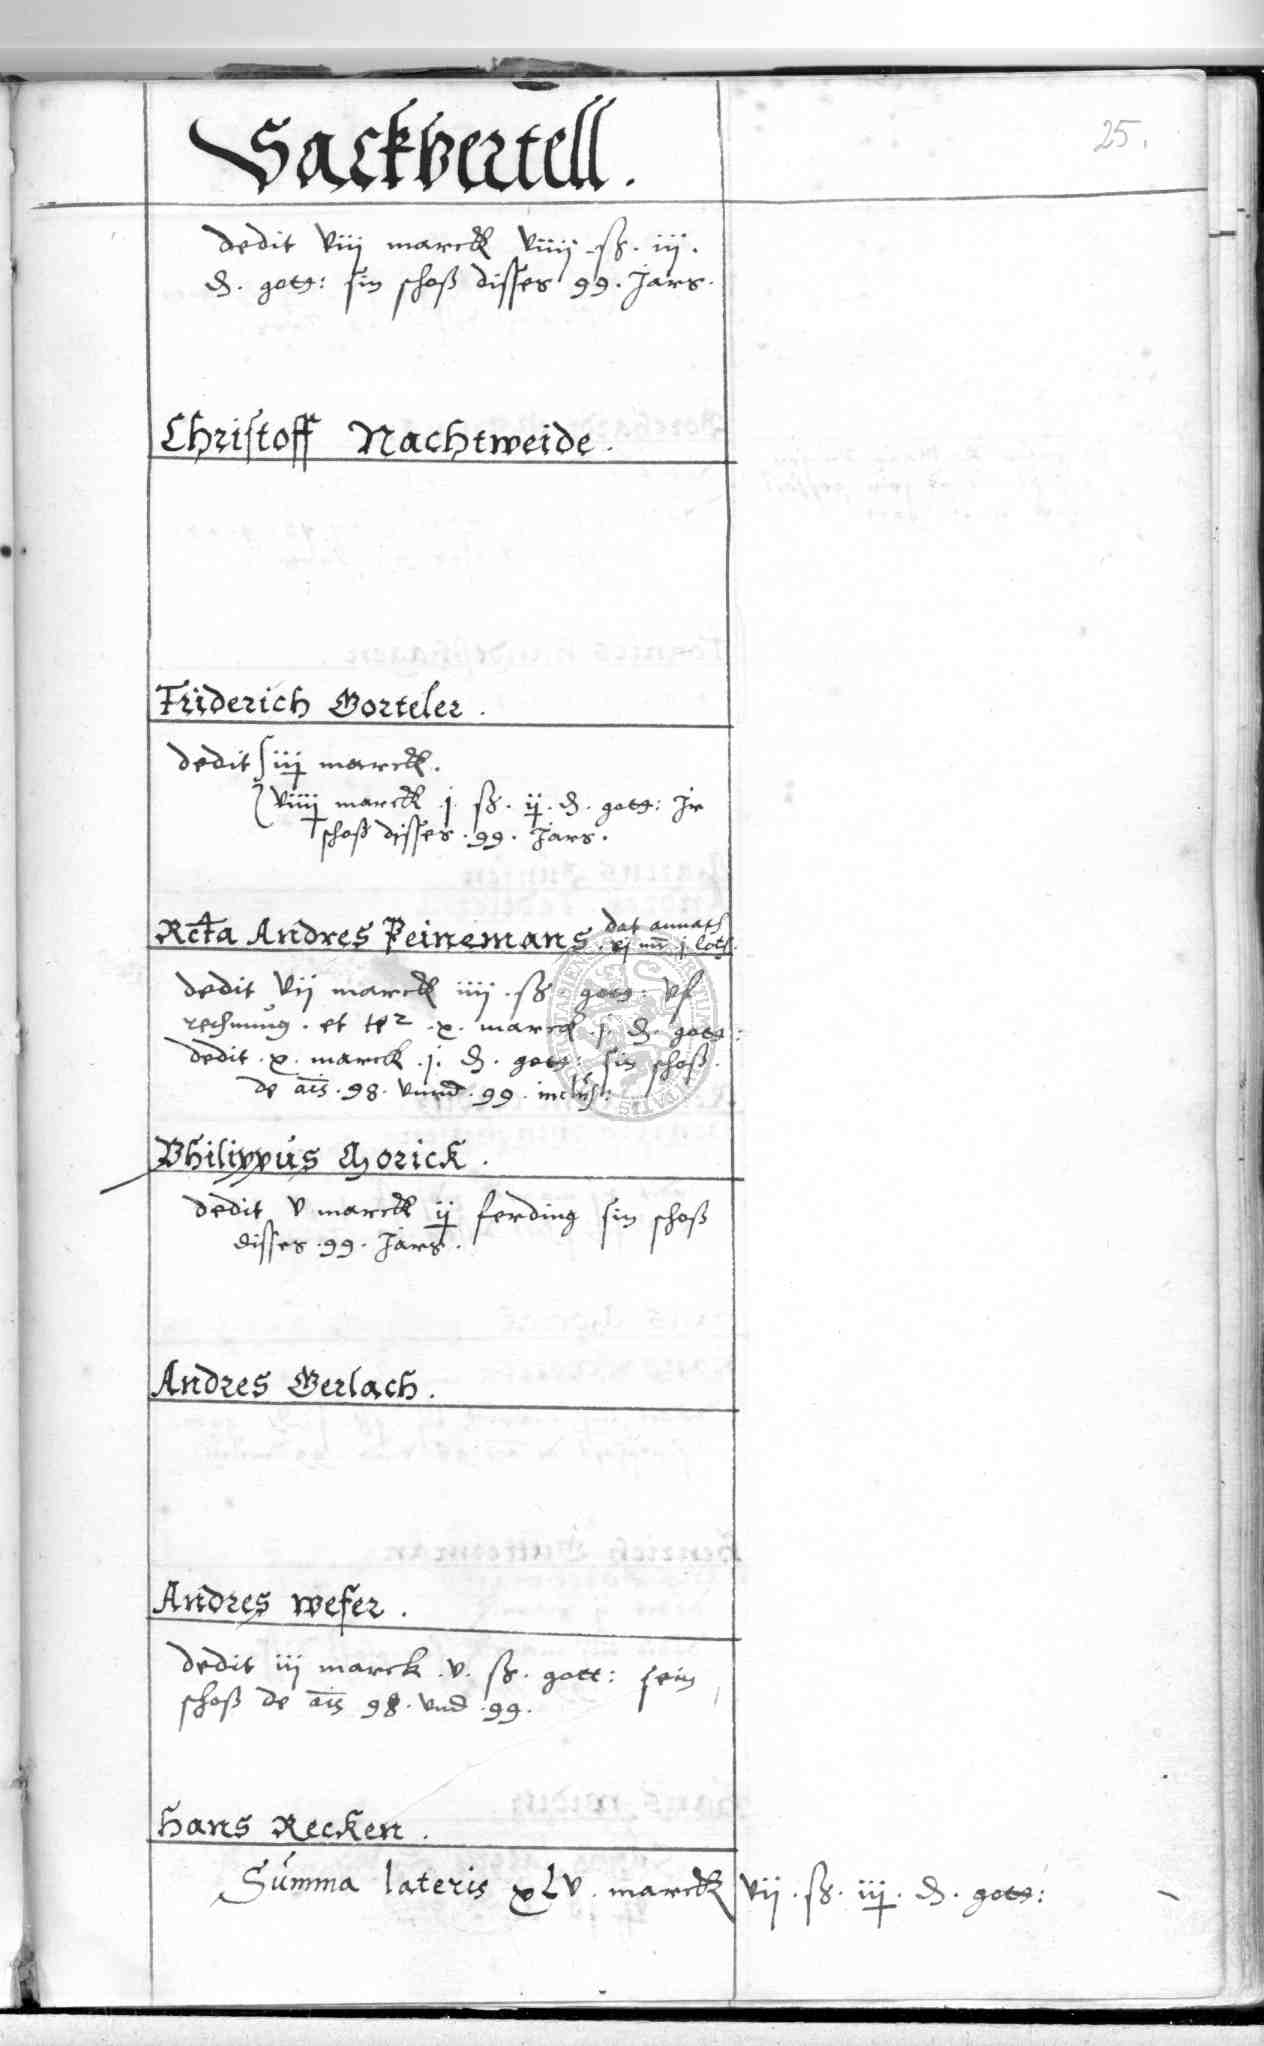 Sackvertell.
25.
dedit viij marck viiij ß. iij.
d. gots: sin schoß disses 99. Jars.
Christoff Nachtweide.
Friderich Gorteler.
dedit iij marck.
viiij marck .j. ß. ij. d. gots: Jr
schoß disses .99. Jars.
Rcta Andres Peinemans. dat annath
xj mr j loth.
dedit vij marck iiij .ß gots: vf
rechnung. et te² .x. marck .j. d. gots:
dedit .x. marck .j. d. gots: sin schoß.
de ais .98. vnnd .99. inclus:
Philippus Morick.
dedit v marck ij ferding sin schoß
disses .99. Jars.
Andres Gerlach.
Andres weser.
dedit iij marck .v. ß. gott: sein
schoß de ais 98. vnd .99.
Hans Recken.
Summa lateris xLv. marck vij. ß. iij. d. gots: